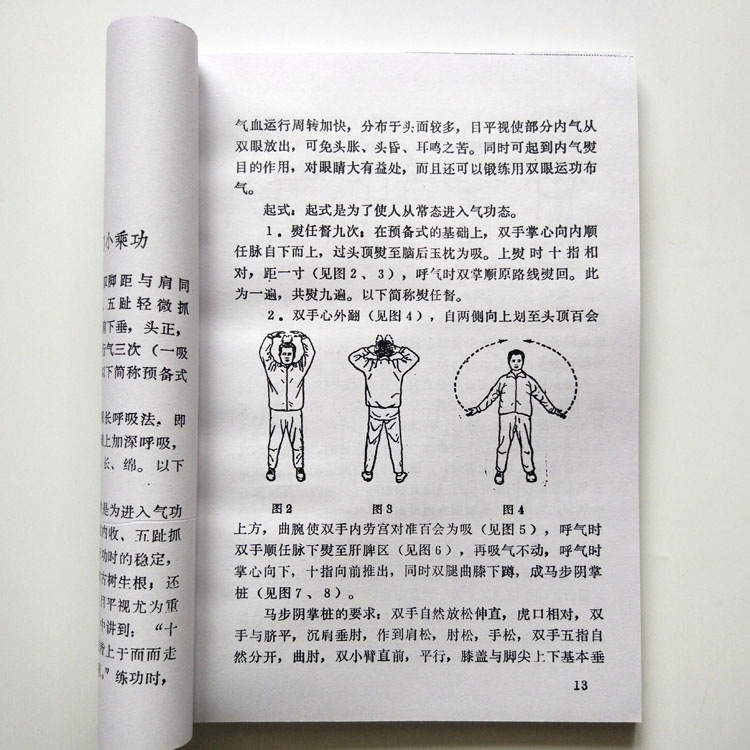 小乘功
脚距与肩同
五趾轻微抓
下垂，头正，
行气三次（一吸
以下简称预备式
长呼吸法，即
上加深呼吸，
长、绵。以下
是为进入气功
内收、五趾抓
功时的稳定，
古树生根；还
目平视尤为重
中讲到：“十
上于而而走
”练功时，
气血运行周转加快，分布于头面较多，目平视使部分内气从
双眼放出，可免头胀、头昏、耳鸣之苦。同时可起到内气熨
目的作用，对眼睛大有益处，而且还可以锻练用双眼运功布
气。
起式：起式是为了使人从常态进入气功态。
1．熨任督九次：在预备式的基础上，双手掌心向内顺
任脉自下而上，过头顶熨至脑后玉枕为吸。上熨时十指相
对，距一寸（见图2、3），呼气时双掌顺原路线熨回。此
为一遍，共熨九遍。以下简称熨任督。
2．双手心外翻（见图4），自两侧向上划至头顶百会
图2
图3
图4
上方，曲腕使双手内劳宫对准百会为吸（见图5），呼气时
双手顺任脉下熨至肝脾区（见图6），再吸气不动，呼气时
掌心向下，十指向前推出，同时双腿曲膝下蹲，成马步阴掌
桩（见图7、8）。
马步阴掌桩的要求：双手自然放松伸直，虎口相对，双
手与脐平，沉肩垂肘，作到肩松，肘松，手松，双手五指自
然分开，曲肘，双小臂直前，平行，膝盖与脚尖上下基本垂
13